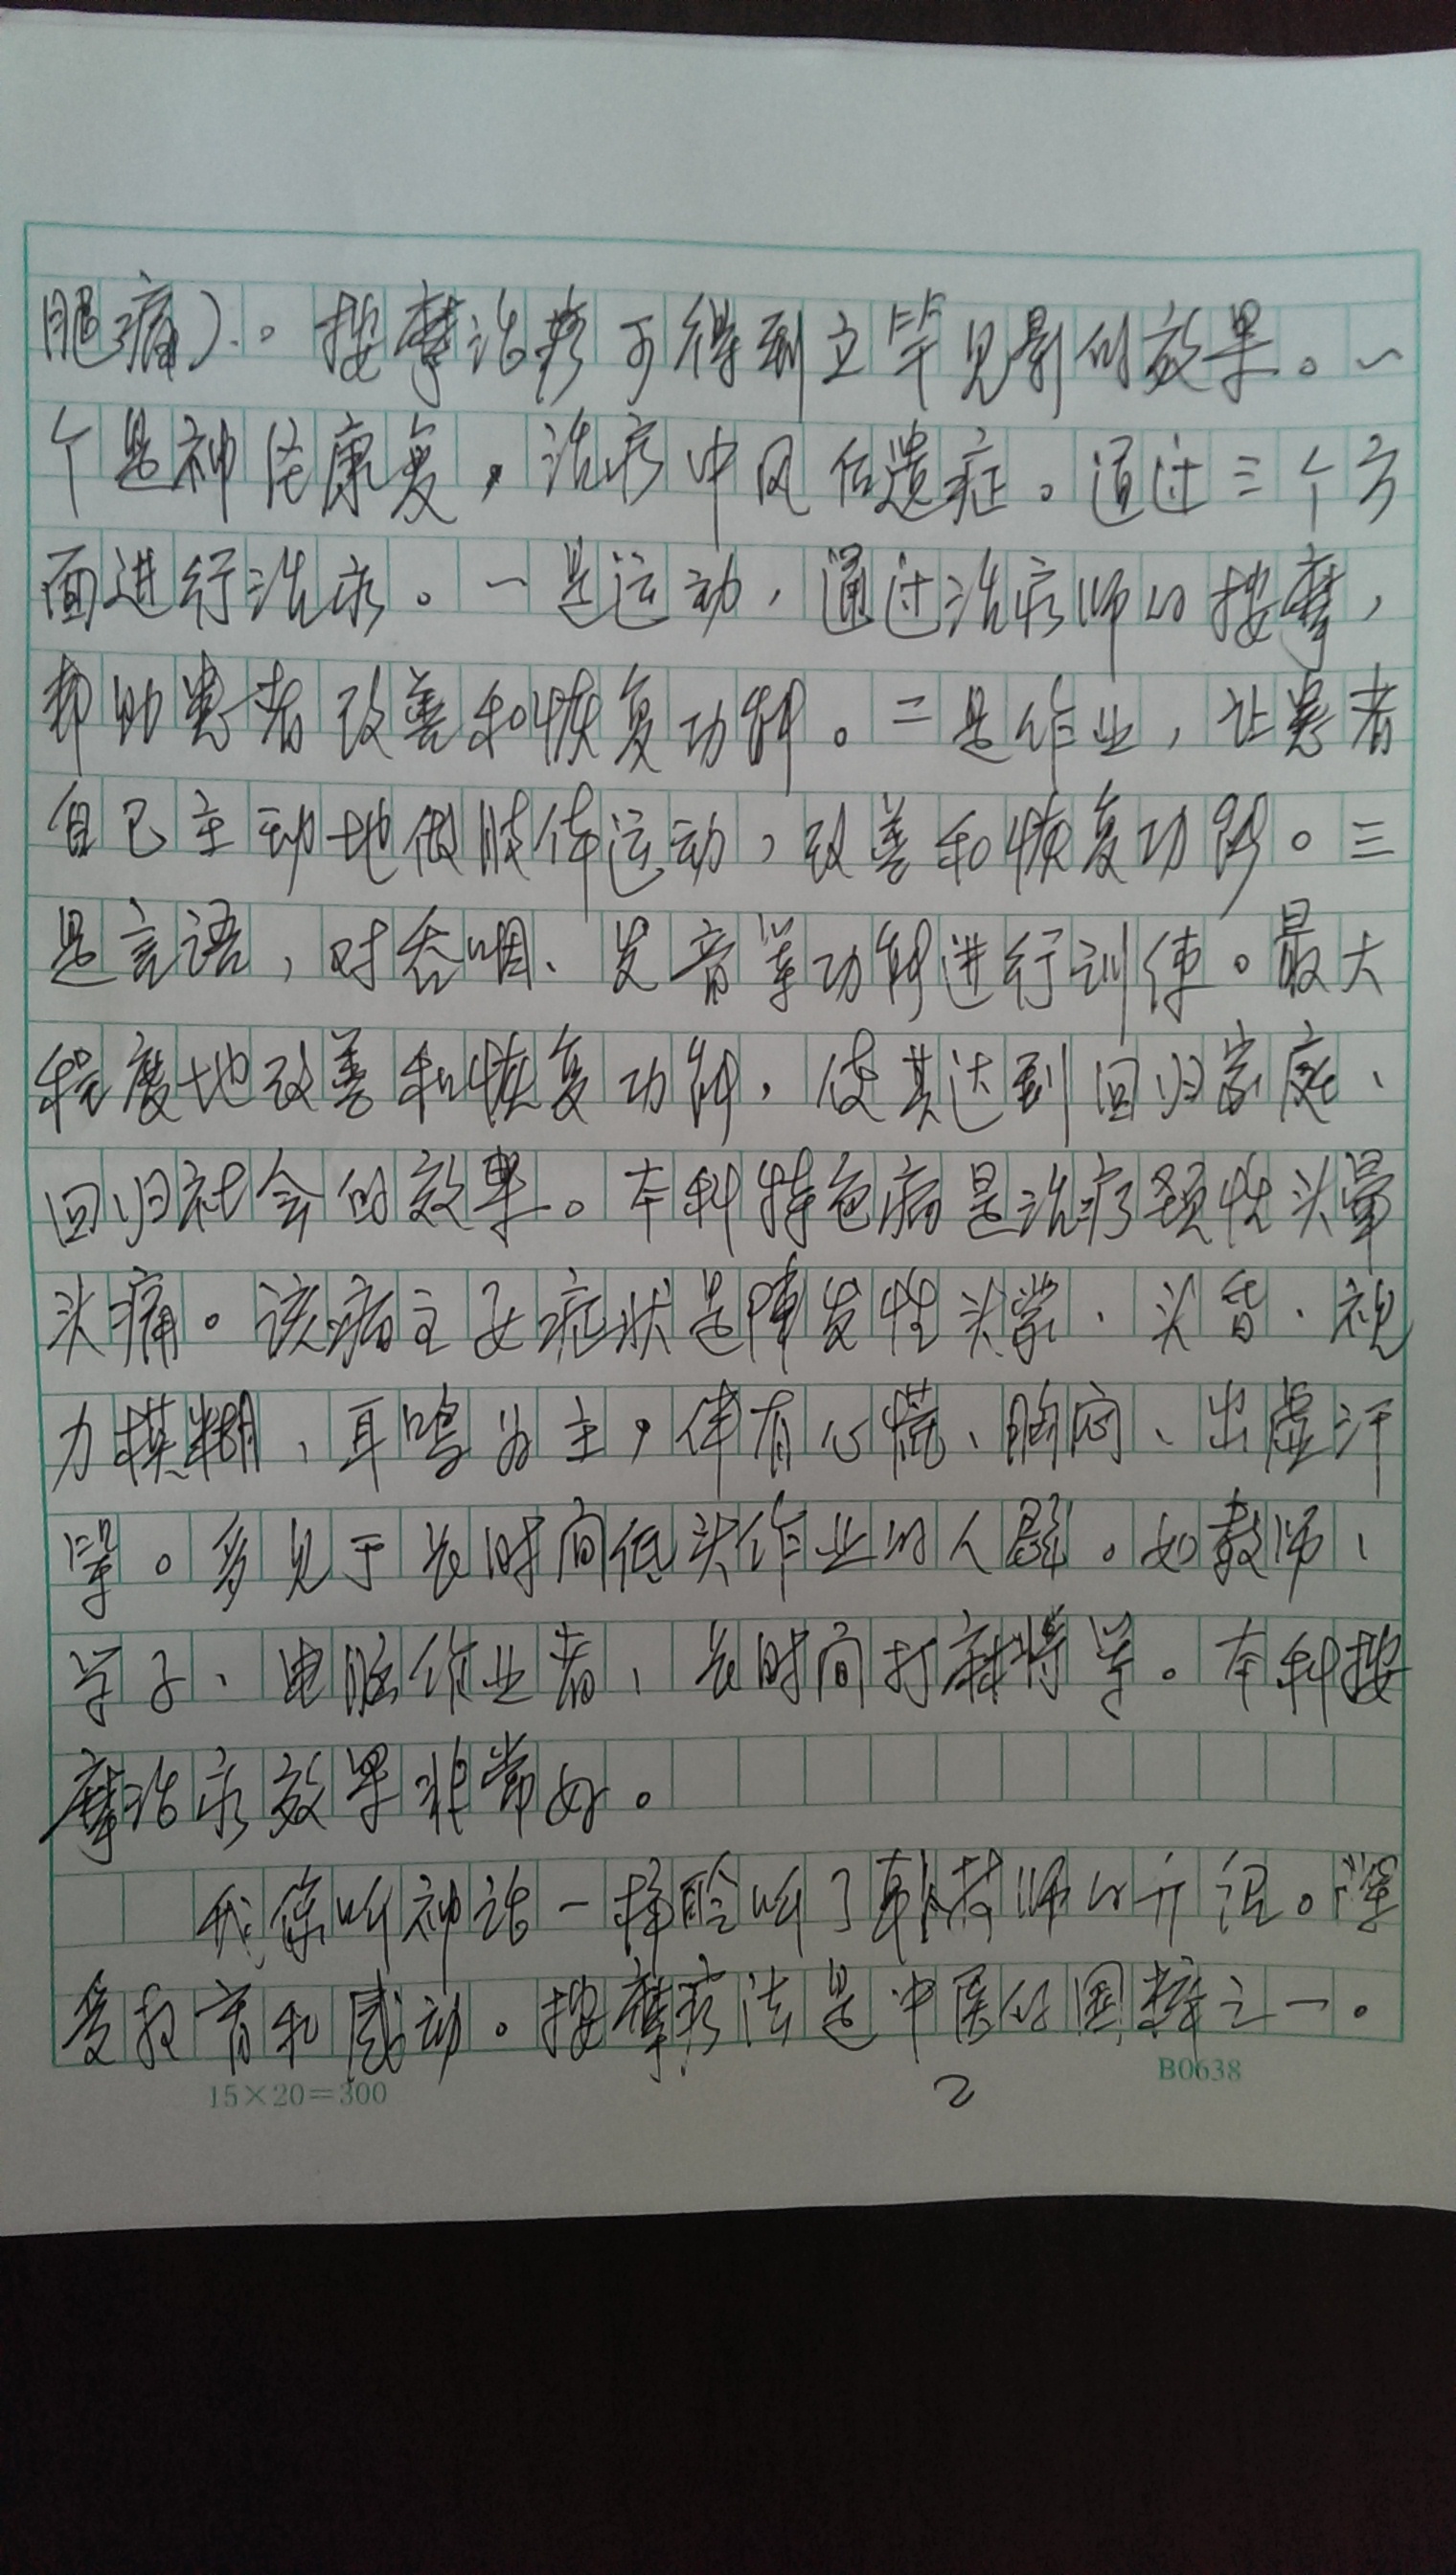 腿痛)。按摩治疗可得到立竿见影的效果。一
个是神经康复,治疗中风后遗症。通过三个方
面进行治疗。一是运动,通过治疗师的按摩,
帮助患者改善和恢复功能。二是作业,让患者
自己主动地做肢体运动,改善和恢复功能。三
是言语,对吞咽、发音等功能进行训练。最大
程度地改善和恢复功能,使其达到回归家庭、
回归社会的效果。本科特色病是治疗颈性头晕
头痛。该病主要症状是阵发性头蒙、头昏、视
力模糊、耳鸣为主,伴有心慌、胸闷、出虚汗
等。多见于长时间低头作业的人群。如教师、
学子、电脑作业者、长时间打麻将等。本科按
摩治疗效果非常好。
我像听神话一样聆听了韩技师的介绍。深
受教育和感动。按摩疗法是中医的国粹之一。
15×20=300
2
B0638